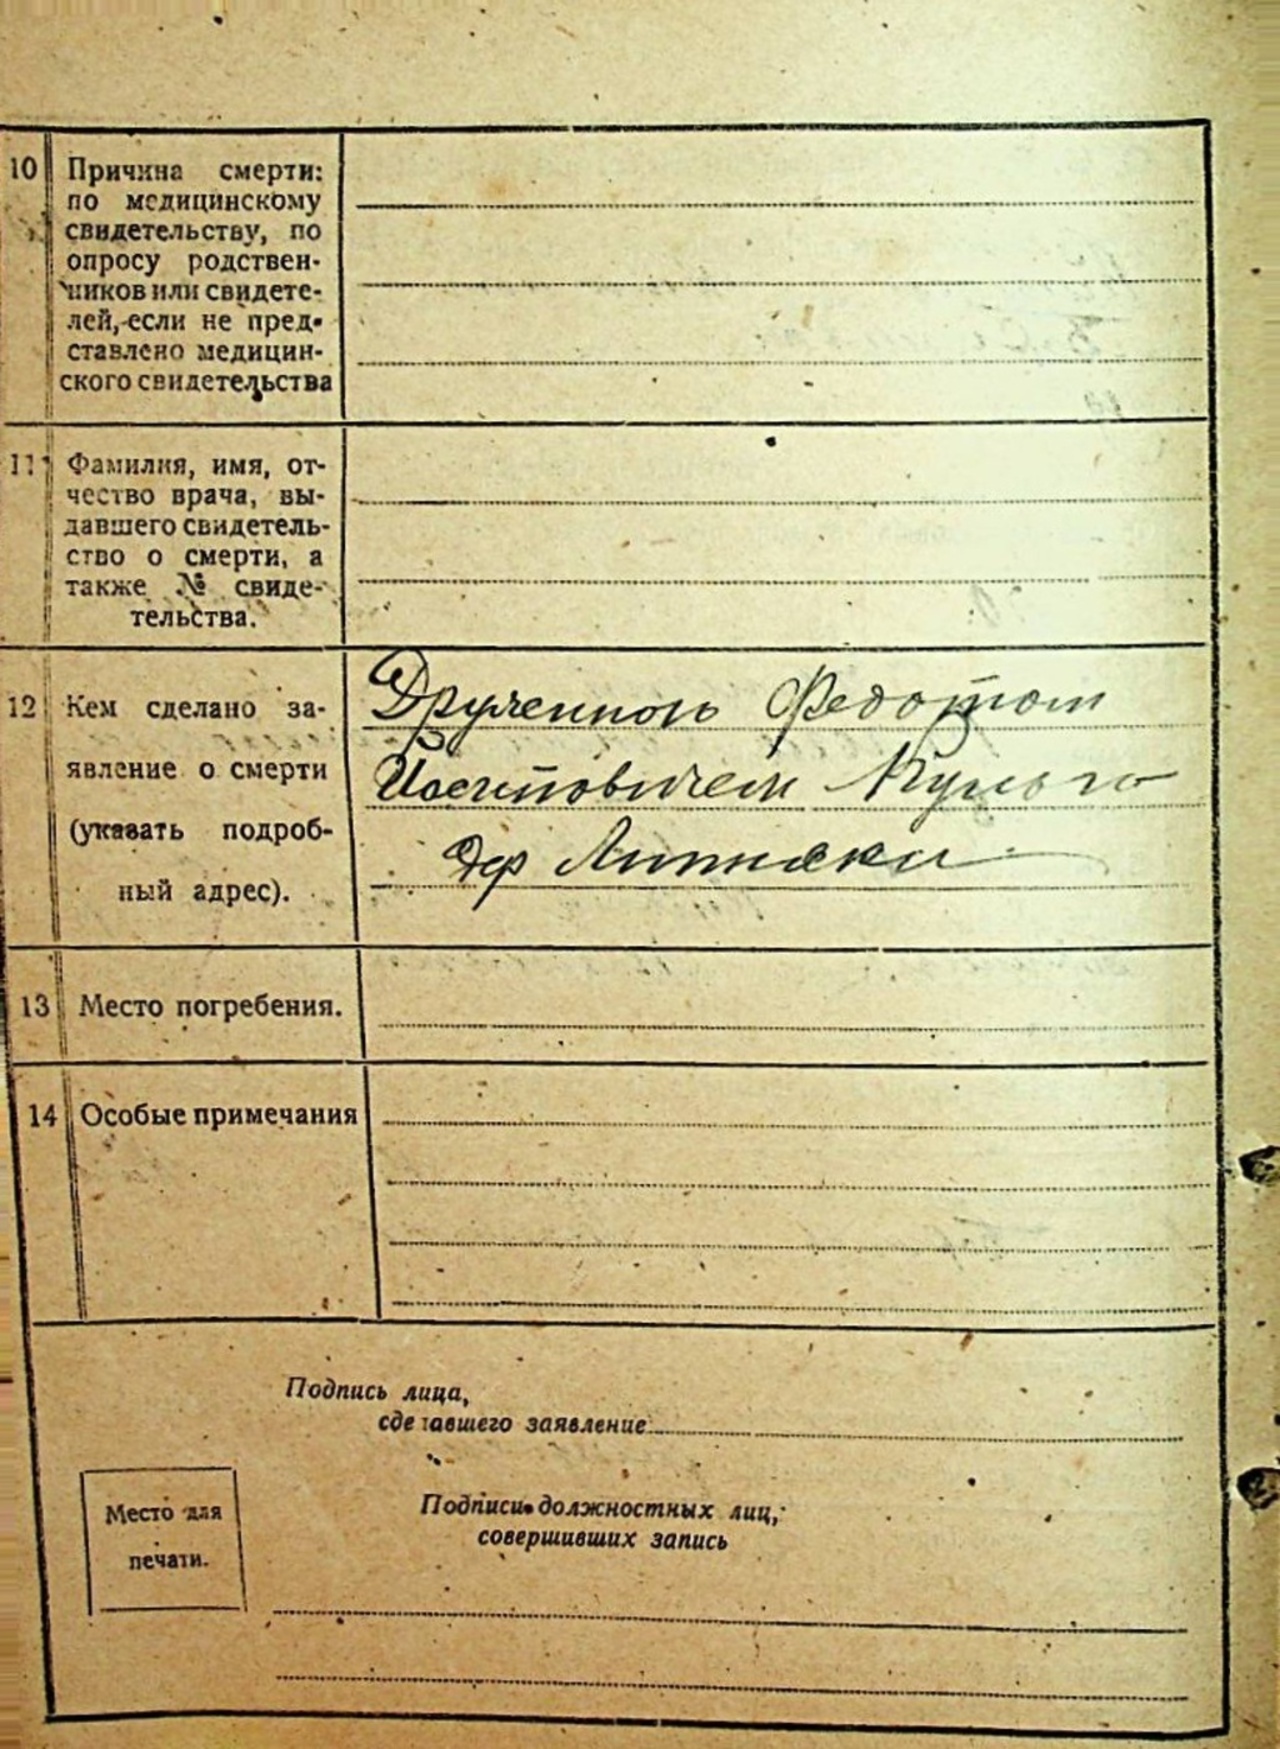 10 Причина смерти:
по медицинскому
свидетельству, по
опросу родствен-
ников или свидете-
лей, если не пред-
ставлено медицин-
ского свидетельства
11 Фамилия, имя, от-
чество врача, вы-
давшего свидетель-
ство о смерти, а
также № свиде-
тельства.
12 Кем сделано за-
явление о смерти
(указать подроб-
ный адрес).
Федотом
дер
13 Место погребения.
14 Особые примечания
Подпись лица,
сделавшего заявление
Место для
печати.
Подписи должностных лиц,
совершивших запись